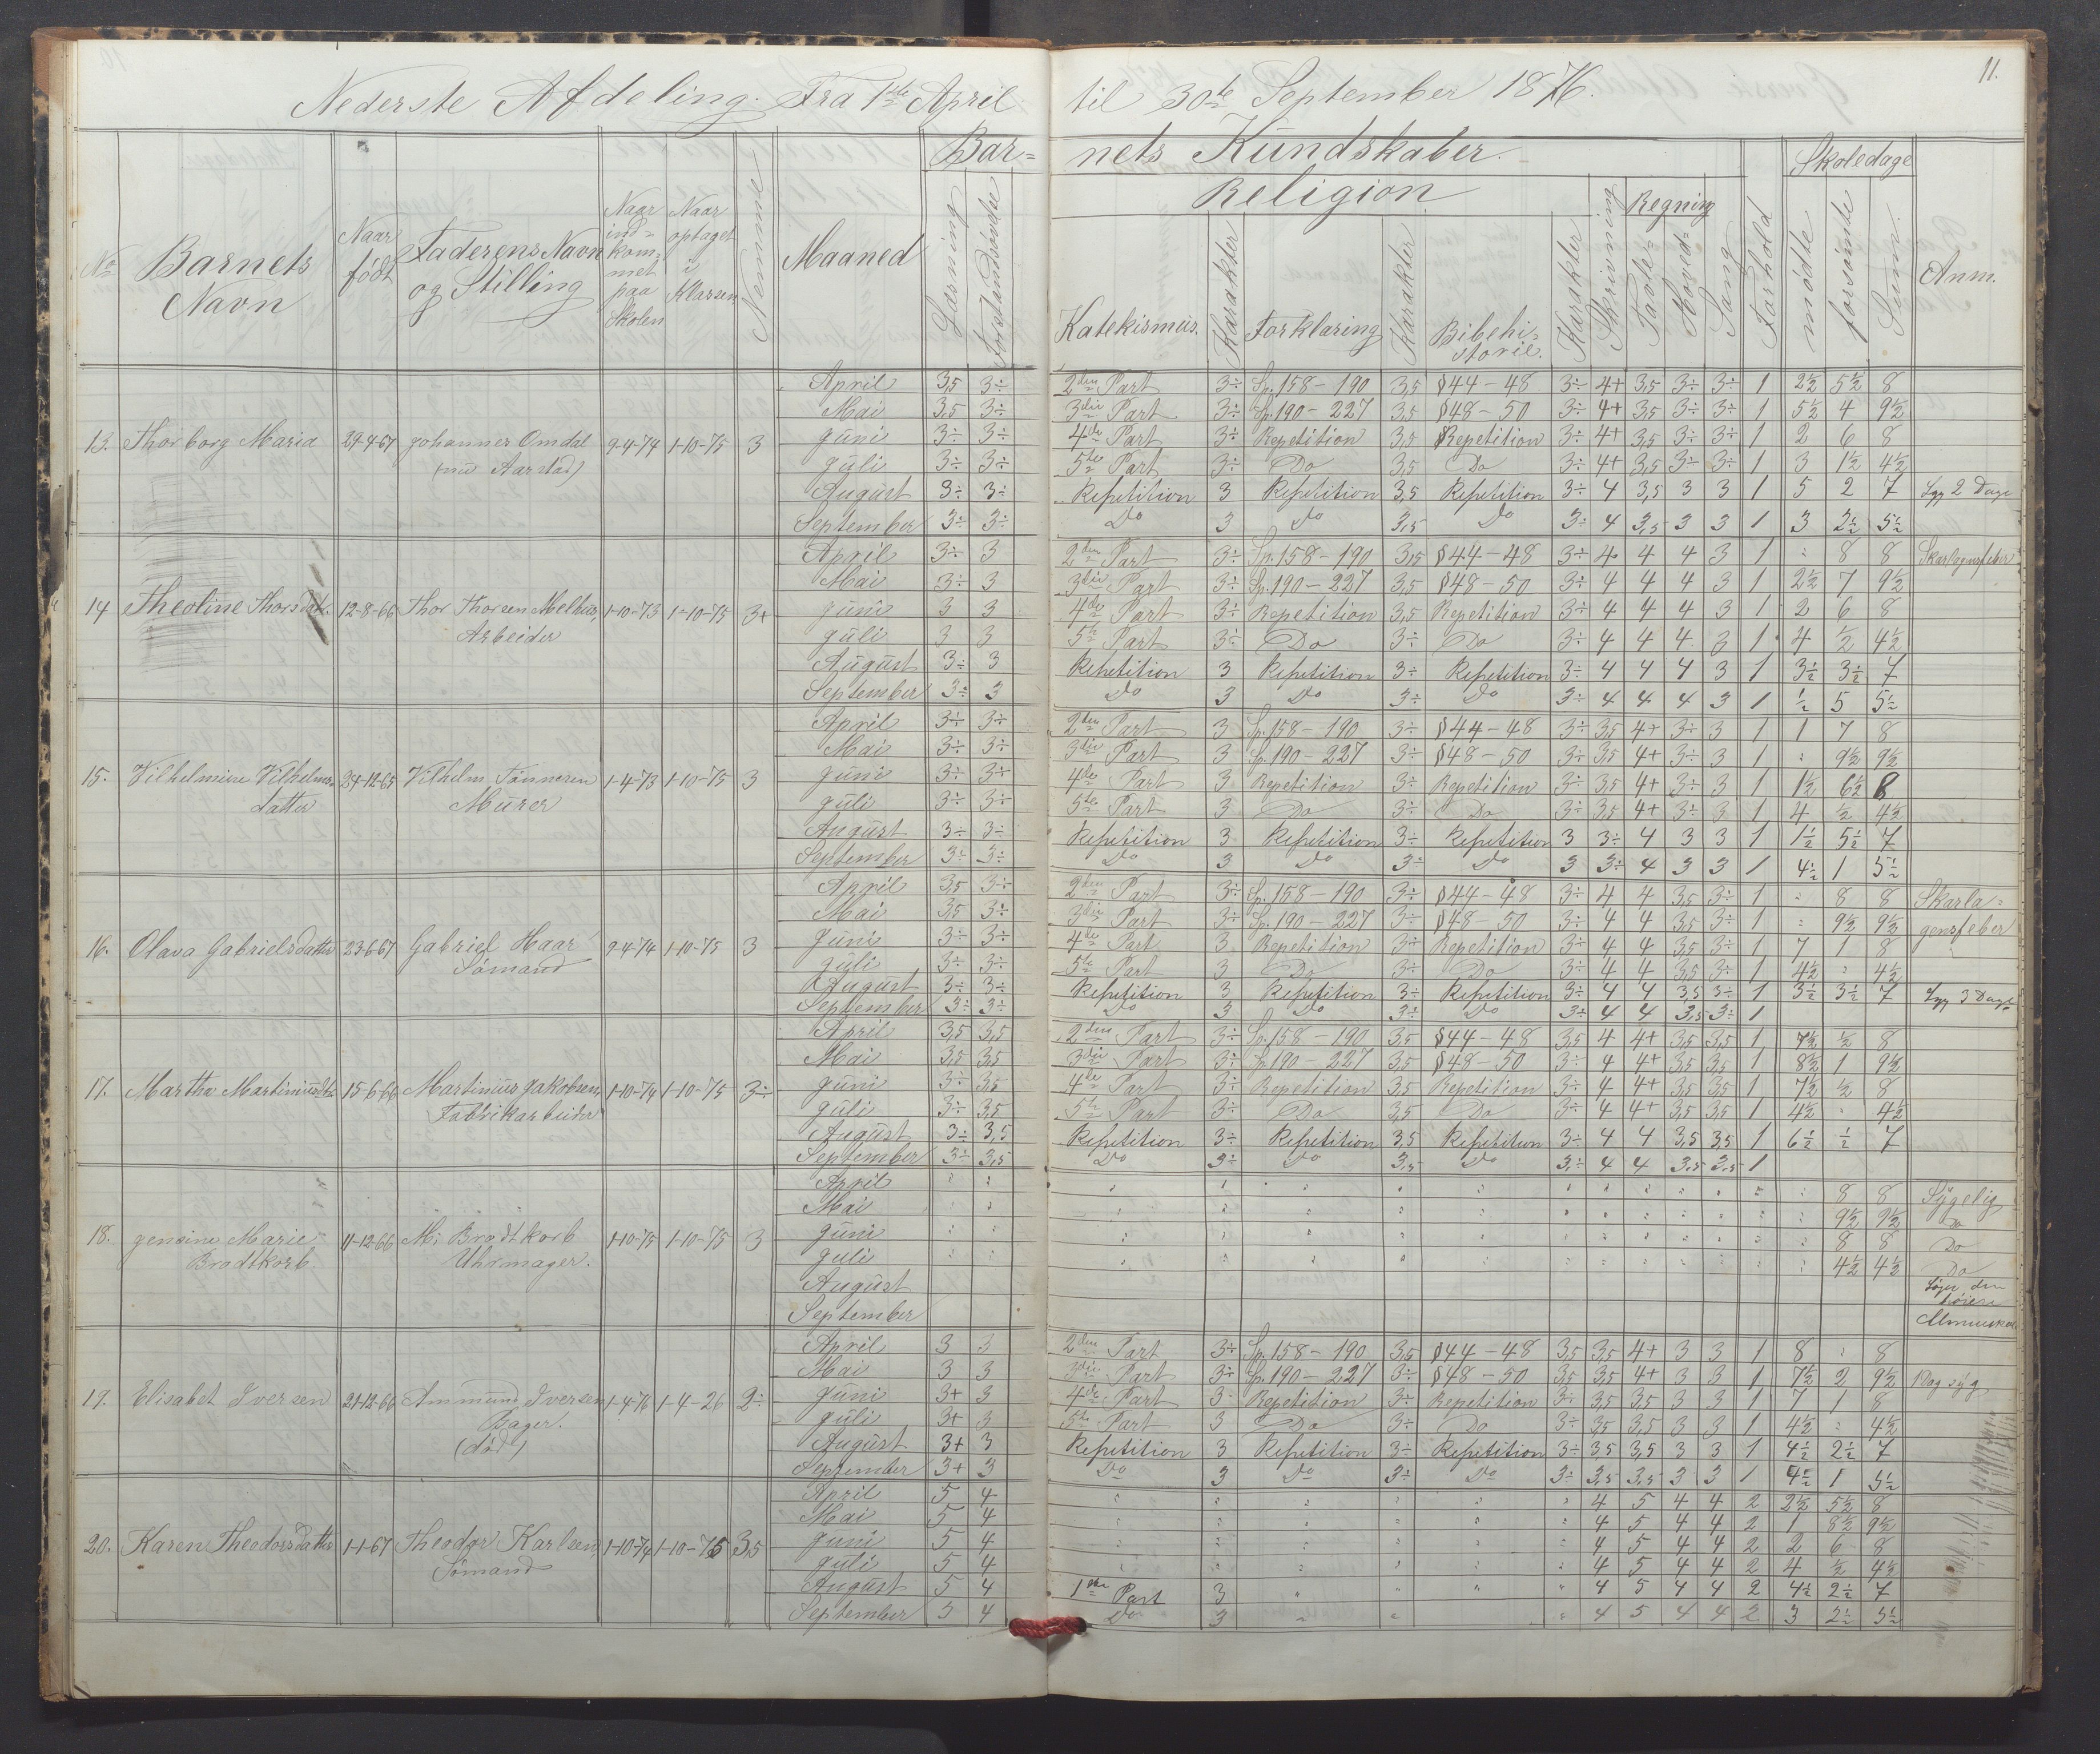 11.
Nederste Afdeling. Fra 1ste April til 30te September 1876.
Bar= nets Kundskaber.
Skoledage
Religion
Regning
No Barnets Navn
Naar født
Faderens Navn og Stilling
Naar ind= kom= met paa Skolen
Naar optaget i Klassen
Nemme
Maaned
Læsning
Forstandsøvelse
Katekismus. Karakter Forklaring Karakter Bibelhi= storie. Karakter Skrivning Tavle= Hoved= Sang Forhold mødte forsømte Sum. Anm.
April 3,5 3÷ 2den Part 3÷ Sp. 158–190 3,5 §44–48 3÷ 4+ 3,5 3÷ 3÷ 1 2½ 5½ 8
Mai 3,5 3÷ 3die Part 3÷ Sp. 190–227 3,5 §48–50 3÷ 4+ 3,5 3÷ 3÷ 1 5½ 4 9½
13. Thorborg Maria 24-4-67 Johannes Omdal 9-4-74 1-10-75 3 Juni 3÷ 3÷ 4de Part 3÷ Repetition 3,5 Repetition 3÷ 4+ 3,5 3÷ 3÷ 1 2 6 8
(nu Aarstad) Juli 3÷ 3÷ 5te Part 3÷ Do 3,5 Do 3÷ 4+ 3,5 3÷ 3÷ 1 3 1½ 4½
August 3÷ 3÷ Repetition 3 Repetition 3,5 Repetition 3÷ 4 3,5 3 3 1 5 2 7 Syg 2 Dage
September 3÷ 3÷ Do 3 Do 3,5 Do 3÷ 4 3,5 3 3 1 3 2½ 5½
April 3÷ 3 2den Part 3÷ Sp. 158–190 3,5 §44–48 3÷ 4 4 4 3 1 : 8 8 Skarlagensfeber
Mai 3÷ 3 3die Part 3÷ Sp. 190–227 3,5 §48–50 3÷ 4 4 4 3 1 2½ 7 9½
14 Theoline Thorsdtr. 12-8-66 Thor Thorsen Melhus, 1-10-73 1-10-75 3+ Juni 3 3 4de Part 3÷ Repetition 3,5 Repetition 3÷ 4 4 4 3 1 2 6 8
Arbeider Juli 3 3 5te Part 3÷ Do 3÷ Do 3÷ 4 4 4 3 1 4 ½ 4½
August 3÷ 3 Repetition 3 Repetition 3÷ Repetition 3÷ 4 4 4 3 1 3½ 3½ 7
September 3÷ 3 Do 3 Do 3÷ Do 3÷ 4 4 4 3 1 ½ 5 5½
April 3÷ 3÷ 2den Part 3 Sp. 158–190 3÷ §44–48 3÷ 3,5 4+ 3÷ 3 1 1 7 8
Mai 3÷ 3÷ 3die Part 3 Sp. 190–227 3÷ §48–50 3÷ 3,5 4+ 3÷ 3 1 : 9½ 9½
15. Vilhelmine Vilhelms= 24-12-65 Vilhelm Tønnesen 1-4-73 1-10-75 3 Juni 3÷ 3÷ 4de Part 3 Repetition 3÷ Repetition 3÷ 3,5 4+ 3÷ 3 1 1½ 6½ 8
datter Murer Juli 3÷ 3÷ 5te Part 3 Do 3÷ Do 3÷ 3,5 4+ 3÷ 3 1 4 ½ 4½
August 3÷ 3÷ Repetition 3 Repetition 3÷ Repetition 3 3÷ 4 3 3 1 1½ 5½ 7
September 3÷ 3÷ Do 3 Do 3÷ Do 3 3÷ 4 3 3 1 4½ 1 5½
April 3,5 3÷ 2den Part 3÷ Sp. 158–190 3÷ §44–48 3÷ 4 4 3,5 3÷ 1 : 8 8 Skarla=
Mai 3,5 3÷ 3die Part 3÷ Sp. 190–227 3÷ §48–50 3÷ 4 4 3,5 3÷ 1 : 9½ 9½ gensfeber
16. Olava Gabrielsdatter 23-6-67 Gabriel Haar 9-4-74 1-10-75 3 Juni 3÷ 3÷ 4de Part 3 Repetition 3÷ Repetition 3÷ 4 4 3,5 3÷ 1 7 1 8
Sømand Juli 3÷ 3÷ 5te Part 3 Do 3÷ Do 3÷ 4 4 3,5 3÷ 1 4½ : 4½
August 3÷ 3÷ Repetition 3 Repetition 3÷ Repetition 3÷ 4 4 3,5 3÷ 1 3½ 3½ 7 Syg 3 Dage
September 3÷ 3÷ Do 3 Do 3÷ Do 3÷ 4 4 3,5 3÷ 1
April 3,5 3,5 2den Part 3÷ Sp. 158–190 3,5 §44–48 3,5 4 4+ 3,5 3,5 1 7½ ½ 8
Mai 3,5 3,5 3die Part 3÷ Sp. 190–227 3,5 §48–50 3÷ 4 4+ 3,5 3,5 1 8½ 1 9½
17. Martha Martiniusdtr. 15-6-66 Martinius Jakobsen, 1-10-74 1-10-75 3÷ Juni 3÷ 3,5 4de Part 3÷ Repetition 3,5 Repetition 3÷ 4 4+ 3,5 3,5 1 7½ ½ 8
Fabrikarbeider Juli 3÷ 3,5 5te Part 3÷ Do 3,5 Do 3÷ 4 4+ 3,5 3,5 1 4½ : 4½
August 3÷ 3,5 Repetition 3÷ Repetition 3,5 Repetition 3÷ 4 4 3,5 3,5 1 6½ ½ 7
September 3÷ 3,5 Do 3÷ Do 3,5 Do 3÷ 4 4 3,5 3,5 1
April : : : : : : : : : : : : : : : 8 8 Sygelig
Mai : : : : : : : : : : : : : : : 9½ 9½ Do
18. Jensine Marie 11-12-66 M. Brodtkorb 1-10-75 1-10-75 3 Juni : : : : : : : : : : : : : : : 8 8 Do
Brodtkorb Uhrmager. Juli : : : : : : : : : : : : : : : 4½ 4½ Do
August Søger den høiere
September Almueskole
April 3 3 2den Part 3÷ Sp. 158–190 3,5 §44–48 3,5 3,5 4+ 3 3 1 8 : 8
Mai 3 3 3die Part 3÷ Sp. 190–227 3÷ §48–50 3,5 3,5 4+ 3 3 1 7½ 2 9½ 1 Dag syg
19. Elisabet Iversen 21-12-66 Ammund Iversen 1-4-76 1-4-26 2÷ Juni 3+ 3 4de Part 3 Repetition 3÷ Repetition 3÷ 3,5 3,5 3 3 1 7 1 8
Bager. Juli 3+ 3 5te Part 3 Do 3÷ Do 3÷ 3,5 3,5 3 3 1 4½ : 4½
(død) August 3+ 3 Repetition 3 Repetition 3÷ Repetition 3÷ 3,5 3,5 3 3 1 4½ 2½ 7
September 3+ 3 Do 3 Do 3÷ Do 3÷ 3,5 3,5 3 3 1 4½ 1 5½
April 5 4 : : : : : : 4 5 4 4 2 2½ 5½ 8
Mai 5 4 : : : : : : 4 5 4 4 2 1 8½ 9½
20. Karen Theodorsdatter 1-1-67 Theodor Karlsen, 1-10-74 1-10-75 3,5 Juni 5 4 : : : : : : 4 5 4 4 2 2 6 8
Sømand Juli 5 4 : : : : : : 4 5 4 4 2 4 ½ 4½
August 5 4 1ste Part 3 " " " " 4 5 4 4 2 4½ 2½ 7
September 5 4 Do 3 " " " 4 5 4 4 2 3 2½ 5½